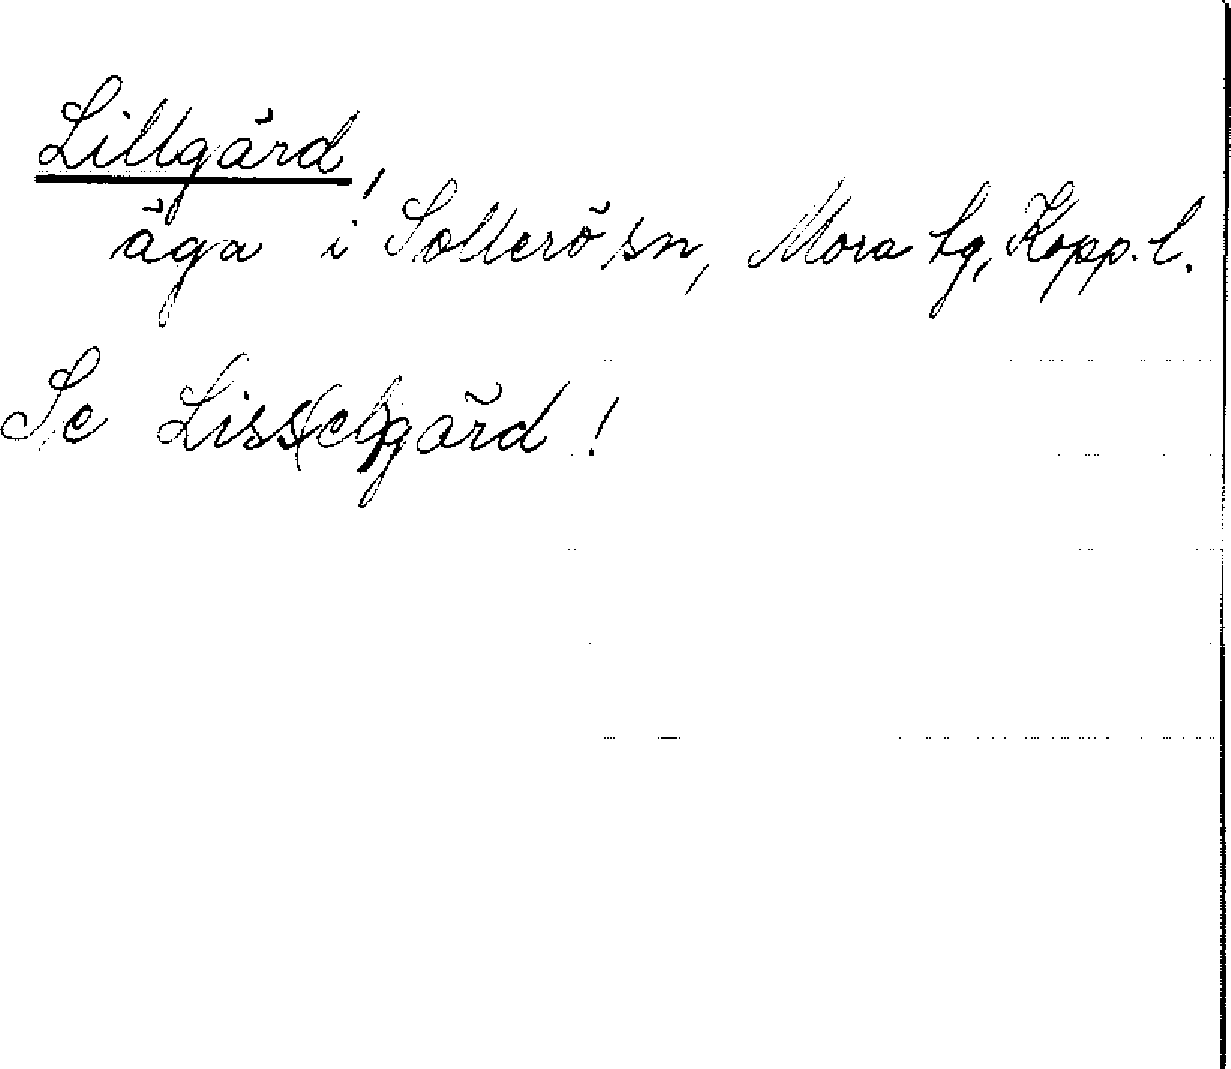 Lillgård!
äga i Sollerö sn, Mora tg, Kopp. l.
Se Liss(el)gård!